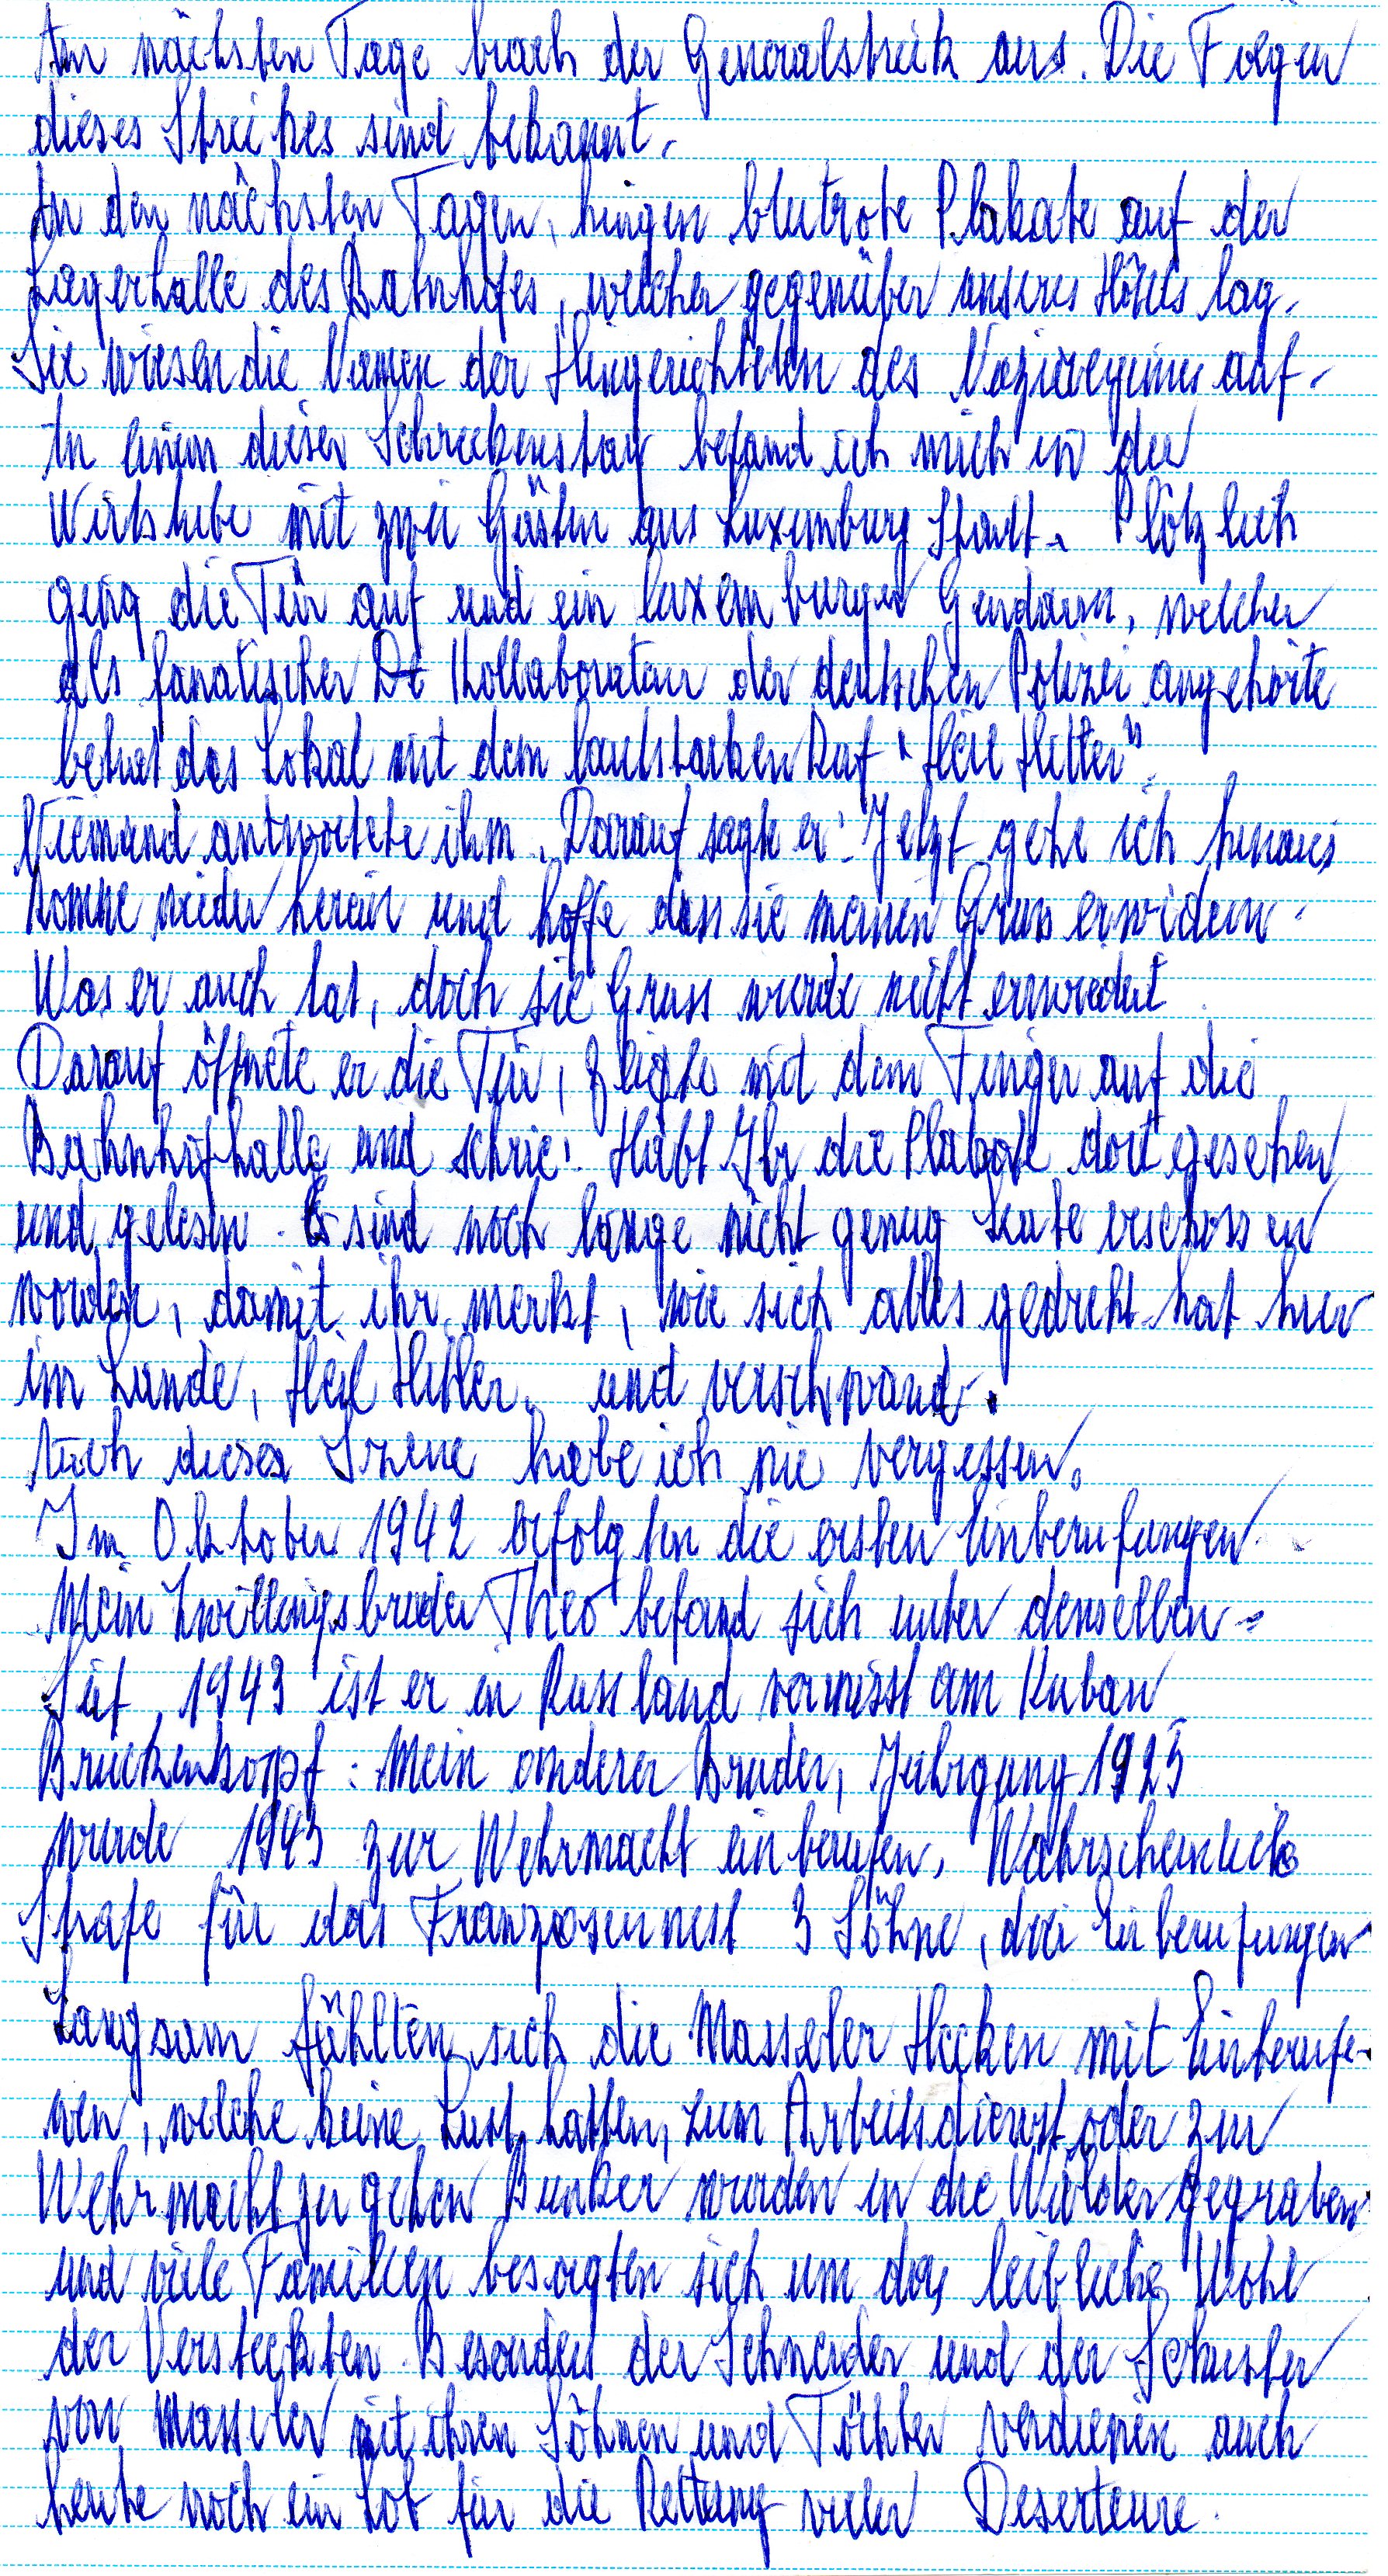 Am nächsten Tage brach der Generalstreik aus. Die Folgen
dieses Streikes sind bekannt.
In den nächsten Tagen, hingen blutrote Plakate auf der
Lagerhalle des Bahnhofes, welcher gegenüber unseres Hôtels lag.
Sie wiesen die Namen der Hingerichteten des Naziregimes auf.
An einem dieser Schreckenstag befand ich mich in der
Wirtstube mit zwei Gästen aus Luxemburg Stadt. Plötzlich
ging die Tür auf und ein luxemburger Gendarm, welcher
als fanatischer De Kollaborateur der deutschen Polizei angehörte
betrat das Lokal mit dem lautstarken Ruf "Heil Hitler".
Niemand antwortete ihm. Darauf sagte er: Jetzt gehe ich hinaus
komme wieder herein und hoffe dass sie meinen Gruss erwidern.
Was er auch tat, doch sie Gruss wurde nicht erwidert
Darauf öffnete er die Tür, zeigte mit dem Finger auf die
Bahnhofhalle und schrie: Habt Ihr die Plakate dort gesehen
und gelesen. Es sind noch lange nicht genug Leute erschossen
worden, damit ihr merkt, wie sich alles gedreht hat hier
im Lande, Heil Hitler, und verschwand.
Auch dieses Szene habe ich nie vergessen.
Im Oktober 1942 erfolgten die ersten Einberufungen.
Mein Zwillingsbruder Theo befand sich unter denselben.
Seit 1943 ist er in Russland vermisst am Kuban
Brückenkopf. Mein anderer Bruder, Jahrgang 1925
wurde 1943 zur Wehrmacht einberufen, Wahrscheinlich
Strafe für das Franzosennest 3 Söhne, drei Einberufungen
Langsam fühlten sich die Masseler Hecken mit Einberufe-
nen, welche keine Lust hatten, zum Arbeitsdienst oder zur
Wehrmacht zu gehen Bunker wurden in die Wälder gegraben
und viele Familien besorgten sich um das leibliche Wohl
der Versteckten. Besonders der Schneider und der Schuster
von Masseler mit ihren Söhnen und Töchter verdienen auch
heute noch ein Lob für die Rettung vieler Deserteure.